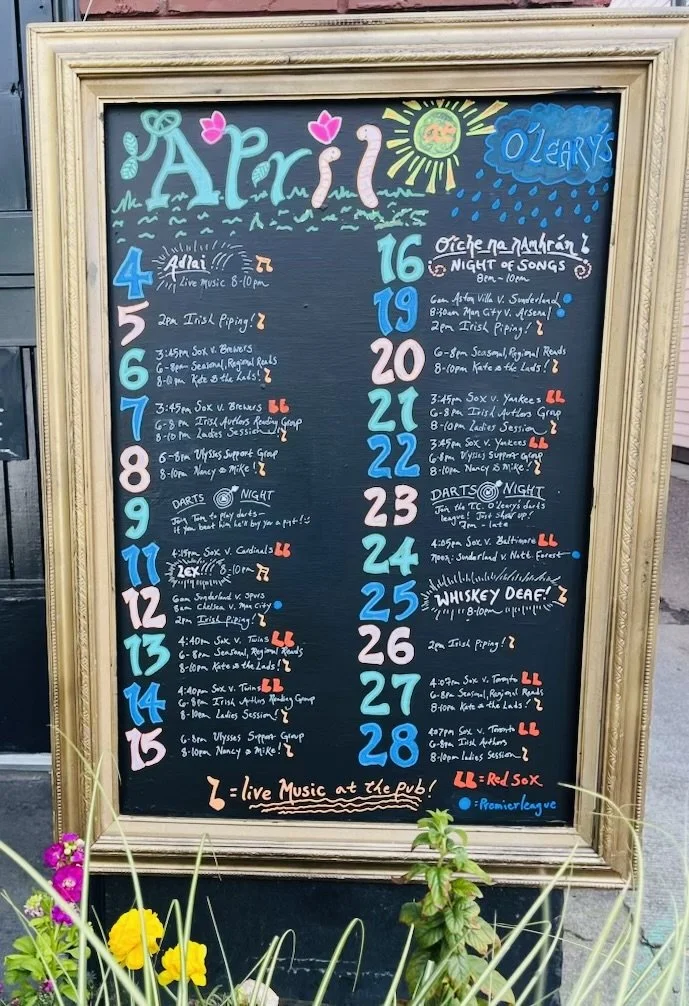 April
O'LEARY'S
4
Adlai
Live Music 8-10pm
5
2pm Irish Piping!
6
3:45pm Sox v. Brewers
6-8pm Seasonal, Regional Reads
8-10pm Kate & the Lads!
7
3:45pm Sox v. Brewers
6-8 pm Irish Authors Reading Group
8-10pm Ladies Session!
8
6-8pm Ulysses Support Group
8-10pm Nancy & Mike!
9
DARTS NIGHT
Join Tom to play darts—
if you beat him he'll buy you a pint! :)
11
4:15pm Sox v. Cardinals
Lex!!! 8-10pm
12
6am Sunderland v. Spurs
8am Chelsea v. Man City
2pm Irish Piping!
13
4:40pm Sox v. Twins
6-8pm Seasonal, Regional Reads
8-10pm Kate & the Lads!
14
4:40pm Sox v. Twins
6-8pm Irish Authors Reading Group
8-10pm Ladies Session!
15
6-8pm Ulysses Support Group
8-10pm Nancy & Mike!
16
Oiche na nAmhrán
NIGHT OF SONGS
8pm-10pm
19
6am Aston Villa v. Sunderland
8:30am Man City v. Arsenal
2pm Irish Piping!
20
6-8pm Seasonal, Regional Reads
8-10pm Kate & the Lads!
21
3:45pm Sox v. Yankees
6-8 pm Irish Authors Group
8-10pm Ladies Session
22
3:45pm Sox v. Yankees
6-8pm Ulysses Support Group
8-10pm Nancy & Mike!
23
DARTS NIGHT
Join the T.C. O'Leary's darts
league! Just show up!
7pm - late
24
4:05pm Sox v. Baltimore
noon: Sunderland v. Nott. Forest
25
WHISKEY DEAF!
8-10pm
26
2pm Irish Piping!
27
4:07pm Sox v. Toronto
6-8pm Seasonal, Regional Reads
8-10pm Kate & the Lads!
28
4:07pm Sox v. Toronto
6-8pm Irish Authors
8-10pm Ladies Session
= live Music at the pub!
= Red Sox
= Premier league